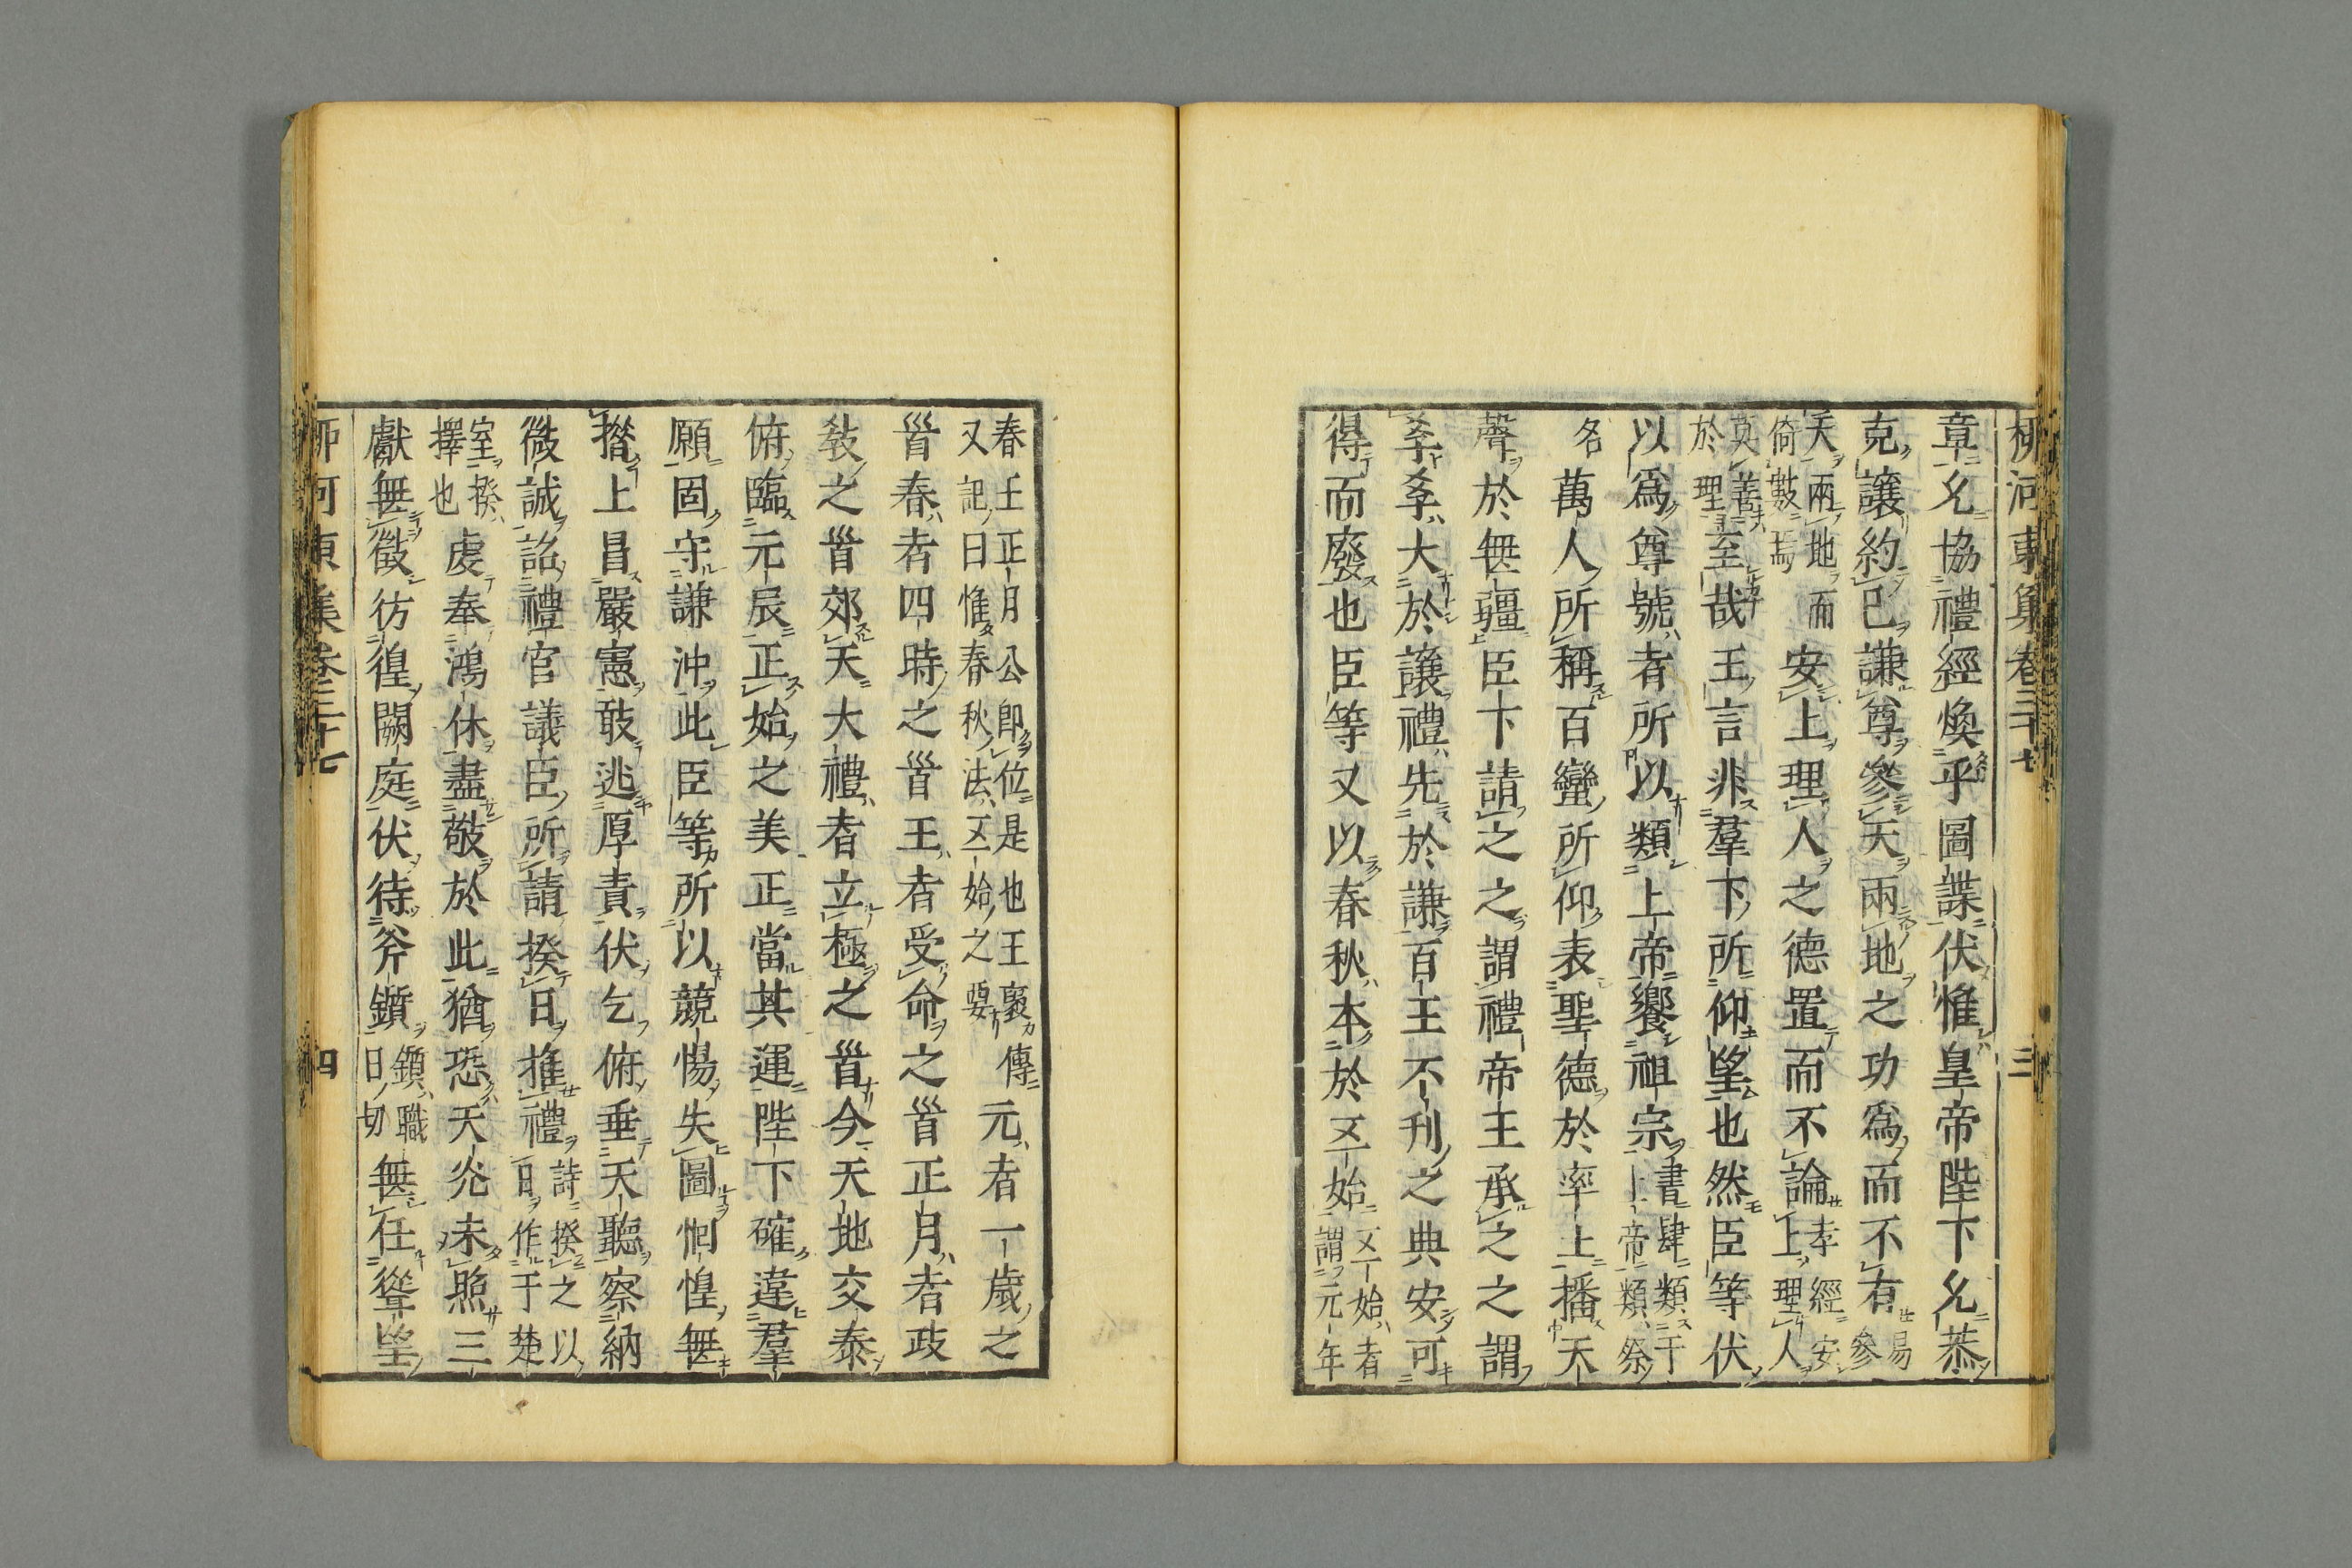 柳河東集卷三十七 三
章允協禮經煥乎圖諜伏惟皇帝陛下允恭
克讓約己謙尊參天兩地之功爲而不有易參
天兩地而倚數焉安上理人之德置而不論孝經安上理人
莫善於理至哉王言非羣下所仰望也然臣等伏
以爲尊號者所以類上帝饗祖宗書肆類于上帝類祭
名萬人所稱百蠻所仰表聖德於率土播天
聲於無疆臣下請之之謂禮帝王承之之謂
孝孝大於讓禮先於謙百王不刊之典安可
得而廢也臣等又以春秋本於五始五始者謂元年
春王正月公即位是也王褒傳又記曰惟春秋法五始之要元者一歲之
首春者四時之首王者受命之首正月者政
敎之首郊天大禮者立極之首今天地交泰
俯臨元辰正始之美正當其運陛下確違羣
願固守謙沖此臣等所以兢惕失圖惘惶無
措上冒嚴憲敢逃厚責伏乞俯垂天聽察納
微誠詔禮官議臣所請揆日推禮詩揆之以日作于楚
室揆擇也虔奉鴻休盡敬於此猶恐天光未照三
獻無徵彷徨闕庭伏待斧鑕鑕職日切無任聳望
柳河東集卷三十七 四